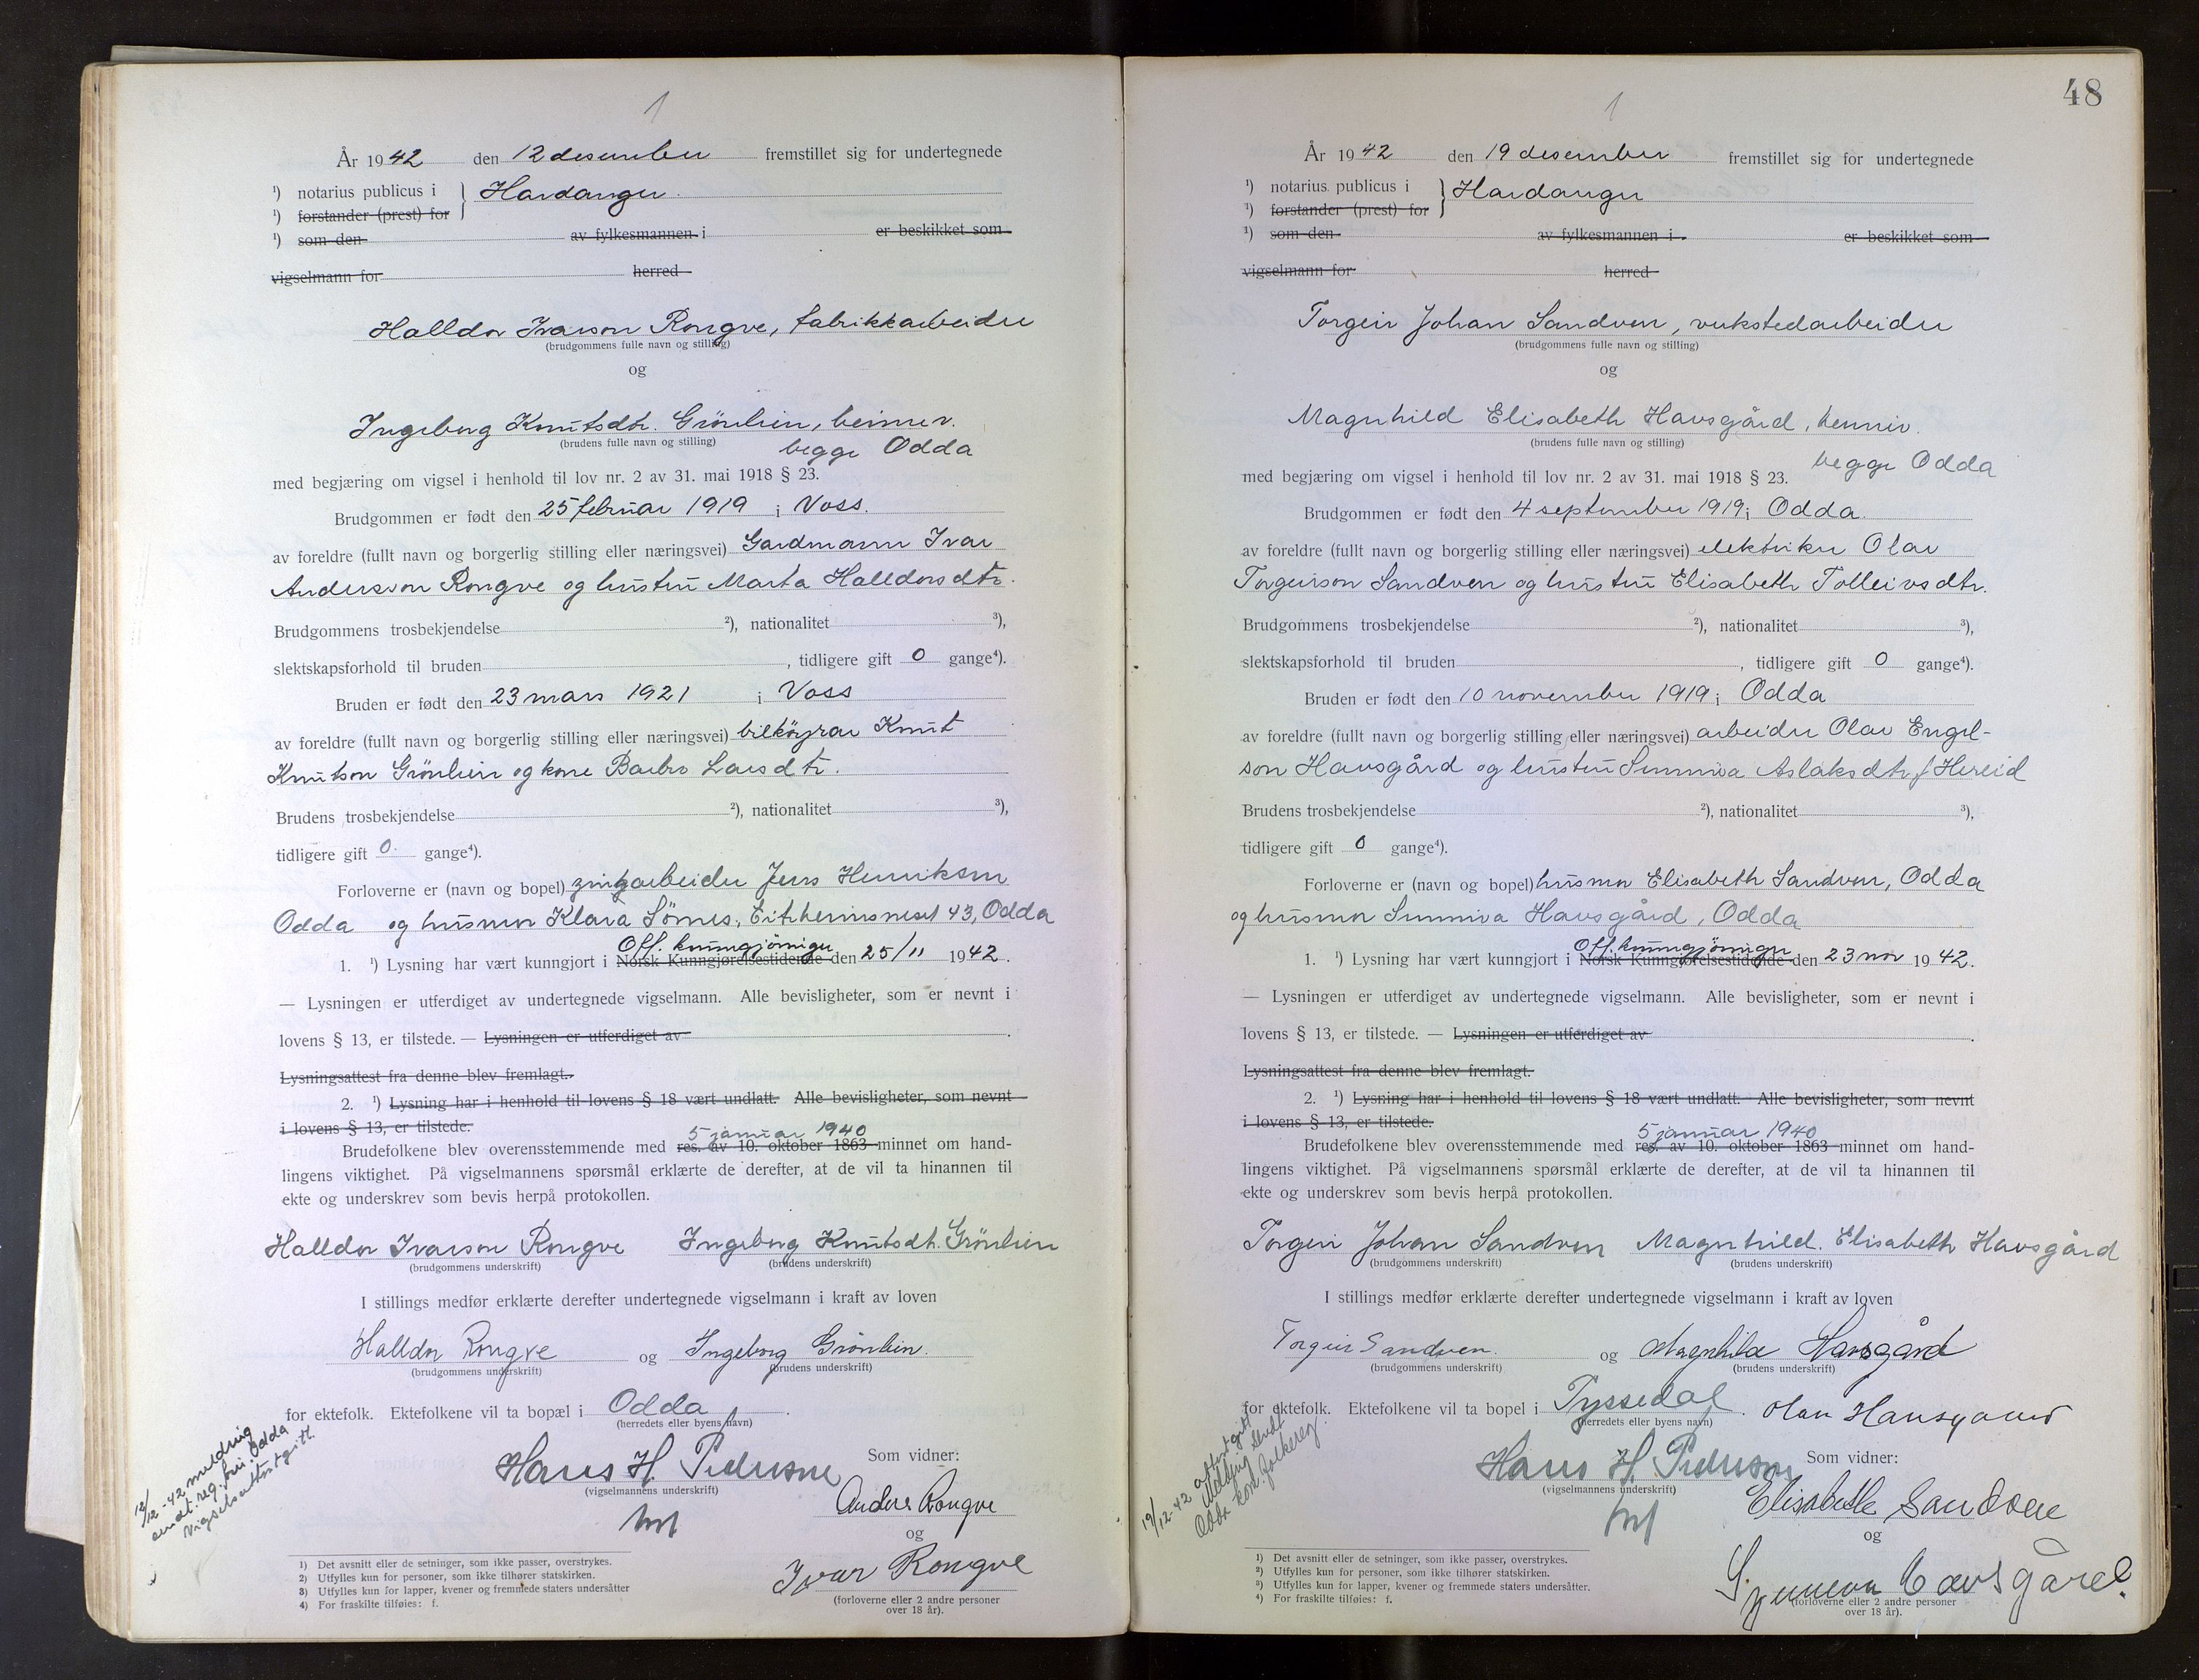 1
År 1942 den 12 desember fremstillet sig for undertegnede
¹) notarius publicus i } Hardanger.
¹) forstander (prest) for
¹) som den av fylkesmannen i er beskikket som
vigselmann for herred
Halldor Ivarson Rongve, fabrikkarbeider
(brudgommens fulle navn og stilling)
og
Ingeborg Knutsdtr. Grönlien, heimev.
(brudens fulle navn og stilling)
begge Odda
med begjæring om vigsel i henhold til lov nr. 2 av 31. mai 1918 § 23.
Brudgommen er født den 25 februar 1919 i Voss.
av foreldre (fullt navn og borgerlig stilling eller næringsvei) Gardmann Ivar
Andersson Rongve og hustru Marta Halldorsdtr.
Brudgommens trosbekjendelse ²), nationalitet ³),
slektskapsforhold til bruden , tidligere gift 0 gange⁴).
Bruden er født den 23 mars 1921 i Voss
av foreldre (fullt navn og borgerlig stilling eller næringsvei) bilköyrar Knut
Knutson Grönlien og kone Barbro Larsdtr.
Brudens trosbekjendelse ²), nationalitet ³),
tidligere gift 0. gange⁴).
Forloverne er (navn og bopel) zinkarbeider Jens Henriksen
Odda og husmor Klara Sömes, Eitrheimsneset 43, Odda
Off. kunngjöringer
1. ¹) Lysning har vært kunngjort i Norsk Kunngjørelsestidende den 25/11 1942.
— Lysningen er utferdiget av undertegnede vigselmann. Alle bevisligheter, som er nevnt i
lovens § 13, er tilstede. — Lysningen er utferdiget av .
Lysningsattest fra denne blev fremlagt.
2. ¹) Lysning har i henhold til lovens § 18 vært undlatt. Alle bevisligheter, som nevnt
i lovens § 13, er tilstede.
5 januar 1940
Brudefolkene blev overensstemmende med res. av 10. oktober 1863 minnet om hand-
lingens viktighet. På vigselmannens spørsmål erklærte de derefter, at de vil ta hinannen til
ekte og underskrev som bevis herpå protokollen.
Halldor Ivarson Rongve Ingeborg Knutsdtr. Grönlien
(brudgommens underskrift) (brudens underskrift)
I stillings medfør erklærte derefter undertegnede vigselmann i kraft av loven
Halldor Rongve og Ingeborg Grönlien.
(brudgommens underskrift) (brudens underskrift)
for ektefolk. Ektefolkene vil ta bopæl i Odda .
(herredets eller byens navn)
12/12-42 melding
sendt. reg. förer. Odda
Vigselsattest gitt.
Som vidner:
Hans H. Pedersen
(vigselmannens underskrift)
Anders Rongve
og
Ivar Rongve
(forloverne eller 2 andre personer
over 18 år).
1) Det avsnitt eller de setninger, som ikke passer, overstrykes.
2) Utfylles kun for personer, som ikke tilhører statskirken.
3) Utfylles kun for lapper, kvener og fremmede staters undersåtter
4) For fraskilte tilføies: f.
48
1
År 1942 den 19 desember fremstillet sig for undertegnede
¹) notarius publicus i } Hardanger
¹) forstander (prest) for
¹) som den av fylkesmannen i er beskikket som
vigselmann for herred
Torgeir Johan Sandven, verkstedarbeider
(brudgommens fulle navn og stilling)
og
Magnhild Elisabeth Havsgård, hennev.
(brudens fulle navn og stilling)
begge Odda
med begjæring om vigsel i henhold til lov nr. 2 av 31. mai 1918 § 23.
Brudgommen er født den 4 september 1919 i Odda.
av foreldre (fullt navn og borgerlig stilling eller næringsvei) elektriker Olav
Torgeirson Sandven og hustru Elisabeth Tolleivsdtr.
Brudgommens trosbekjendelse ²), nationalitet ³),
slektskapsforhold til bruden , tidligere gift 0 gange⁴).
Bruden er født den 10 november 1919 i Odda
av foreldre (fullt navn og borgerlig stilling eller næringsvei) arbeider Olav Engel-
son Havsgård og hustru Sunniva Aslaksdtr f Hereid
Brudens trosbekjendelse ²), nationalitet ³),
tidligere gift 0 gange⁴).
Forloverne er (navn og bopel) husmor Elisabeth Sandven, Odda
og husmor Sunniva Havsgård, Odda
Off. kunngjöringer
1. ¹) Lysning har vært kunngjort i Norsk Kunngjørelsestidende den 23 nov 1942.
— Lysningen er utferdiget av undertegnede vigselmann. Alle bevisligheter, som er nevnt i
lovens § 13, er tilstede. — Lysningen er utferdiget av .
Lysningsattest fra denne blev fremlagt.
2. ¹) Lysning har i henhold til lovens § 18 vært undlatt. Alle bevisligheter, som nevnt
i lovens § 13, er tilstede.
5 januar 1940
Brudefolkene blev overensstemmende med res. av 10. oktober 1863 minnet om hand-
lingens viktighet. På vigselmannens spørsmål erklærte de derefter, at de vil ta hinannen til
ekte og underskrev som bevis herpå protokollen.
Torgeir Johan Sandven Magnhild. Elisabeth Havsgård
(brudgommens underskrift) (brudens underskrift)
I stillings medfør erklærte derefter undertegnede vigselmann i kraft av loven
Torgeir Sandven. og Magnhild Havsgård
(brudgommens underskrift) (brudens underskrift)
for ektefolk. Ektefolkene vil ta bopel i Tyssedal . Olav Havsgård
(herredets eller byens navn)
19/12-42 attest gitt
Melding sendt
Odda kom. folkereg
Som vidner:
Hans H. Pedersen
(vigselmannens underskrift)
Elisabeth Sandven
og
Synneva Havsgård.
(forloverne eller 2 andre personer
over 18 år).
¹) Det avsnitt eller de setninger, som ikke passer, overstrykes.
²) Utfylles kun for personer, som ikke tilhører statskirken.
³) Utfylles kun for lapper, kvener og fremmede staters undersåtter.
⁴) For fraskilte tilføies: f.